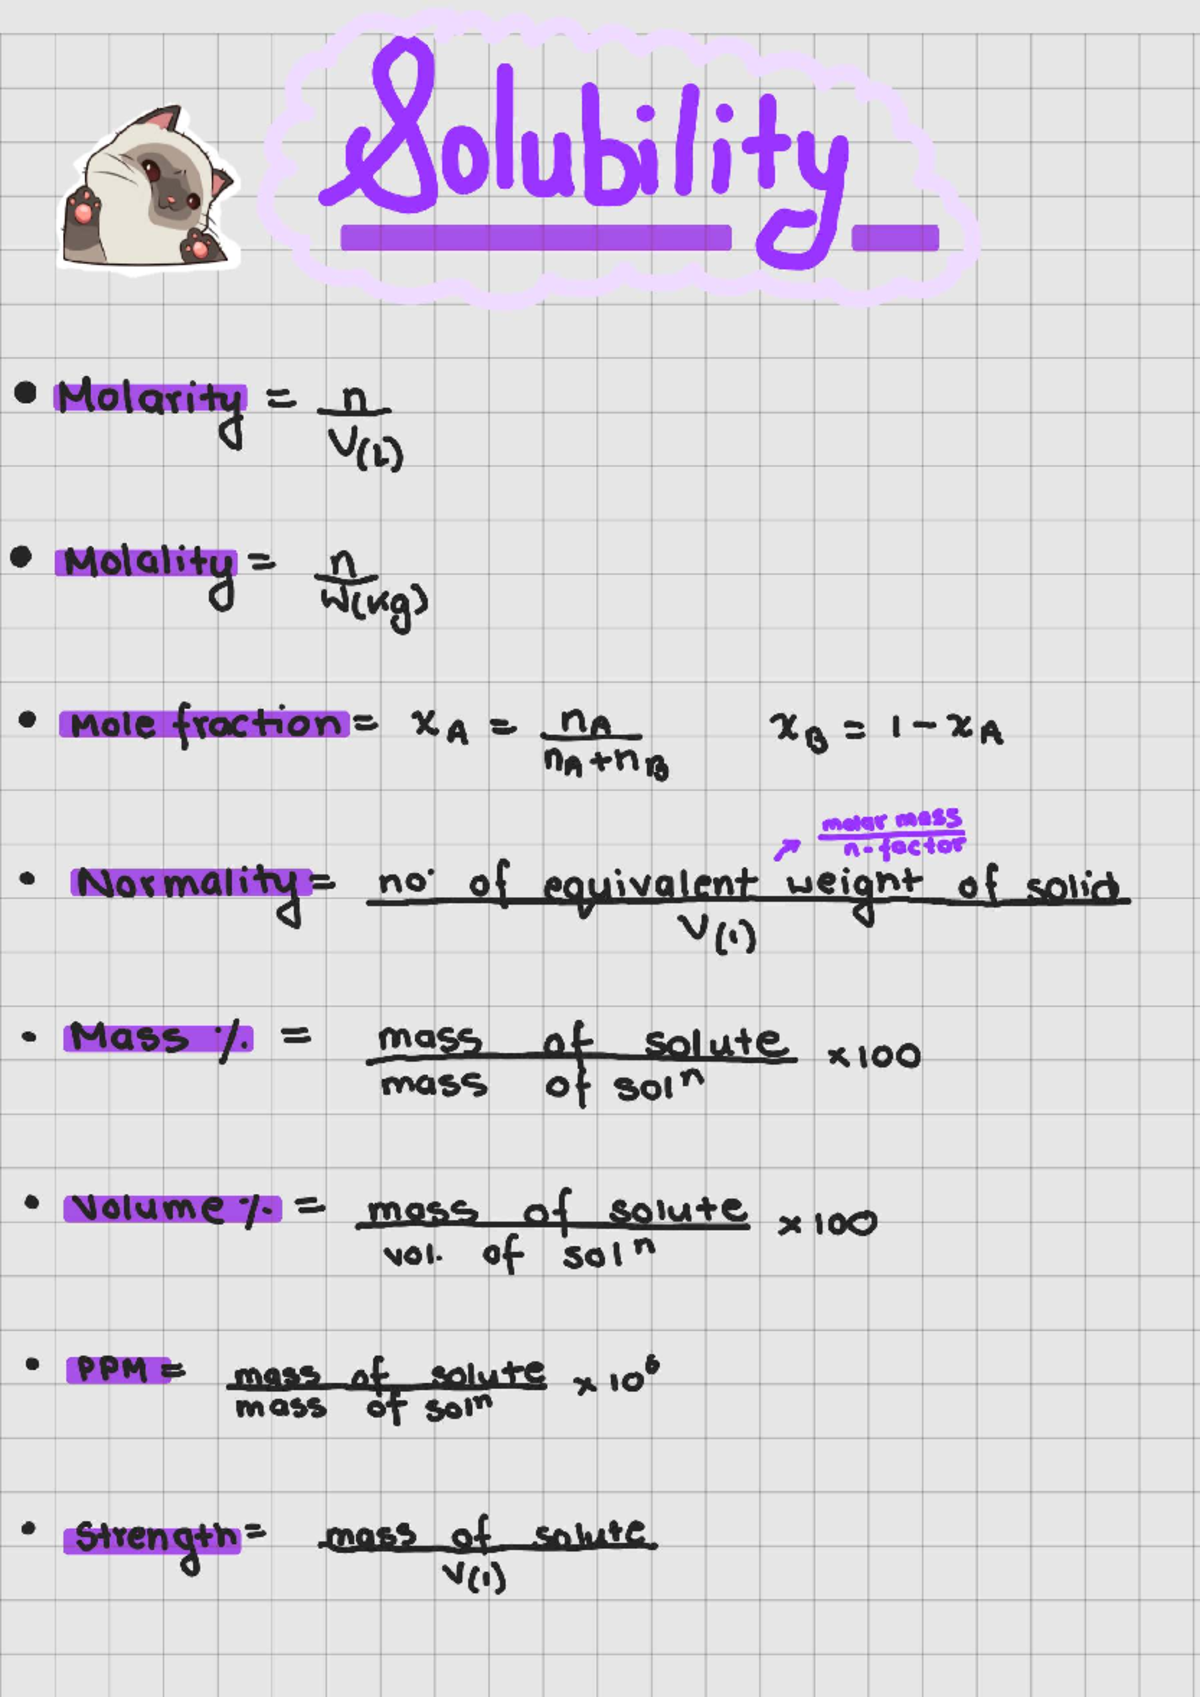 Solubility
• Molarity = n / V(L)
• Molality = n / W(Kg)
• Mole fraction = xA = nA / nA+nB    xB = 1 - xA
↗ molar mass / n-factor
• Normality = no· of equivalent weight of solid / V(l)
• Mass % = mass of solute / mass of solⁿ × 100
• Volume % = mass of solute / vol. of solⁿ × 100
• PPM = mass of solute / mass of solⁿ × 10⁶
• Strength = mass of solute / V(l)